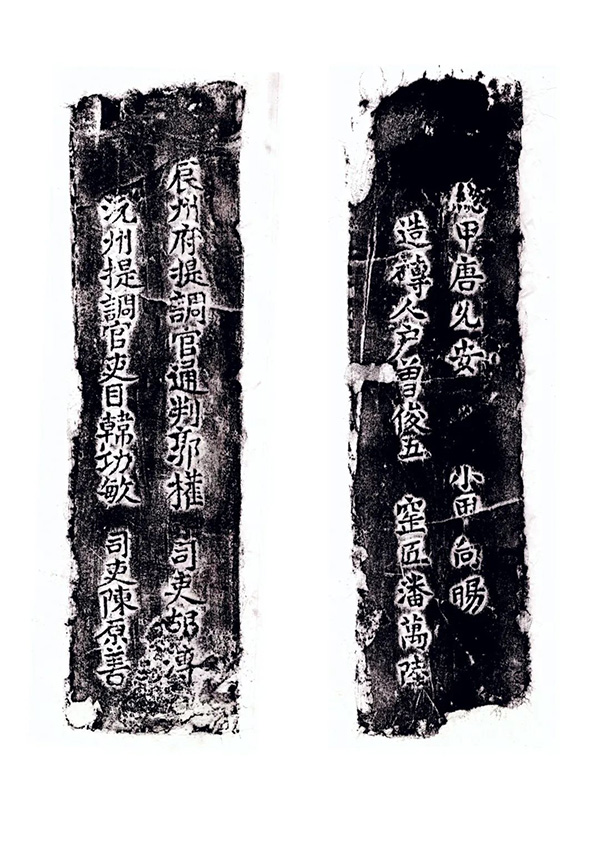 總甲唐允安 小甲向暘
造磚人户曾俊五 窑匠潘萬陸
辰州府提調官通判權 司吏胡
沅州提調官吏目韓功敏 司吏陳原善